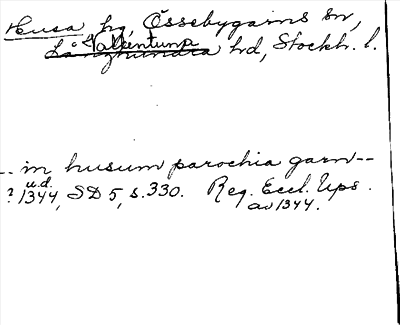 Husa hg, Össebygarns sn,
Vallentuna
Långhundra hd, Stockh. l.
-- in husum parochia garn--
u.d.
? 1344, SD 5, s. 330. Reg. Eccl. Ups.
av 1344.